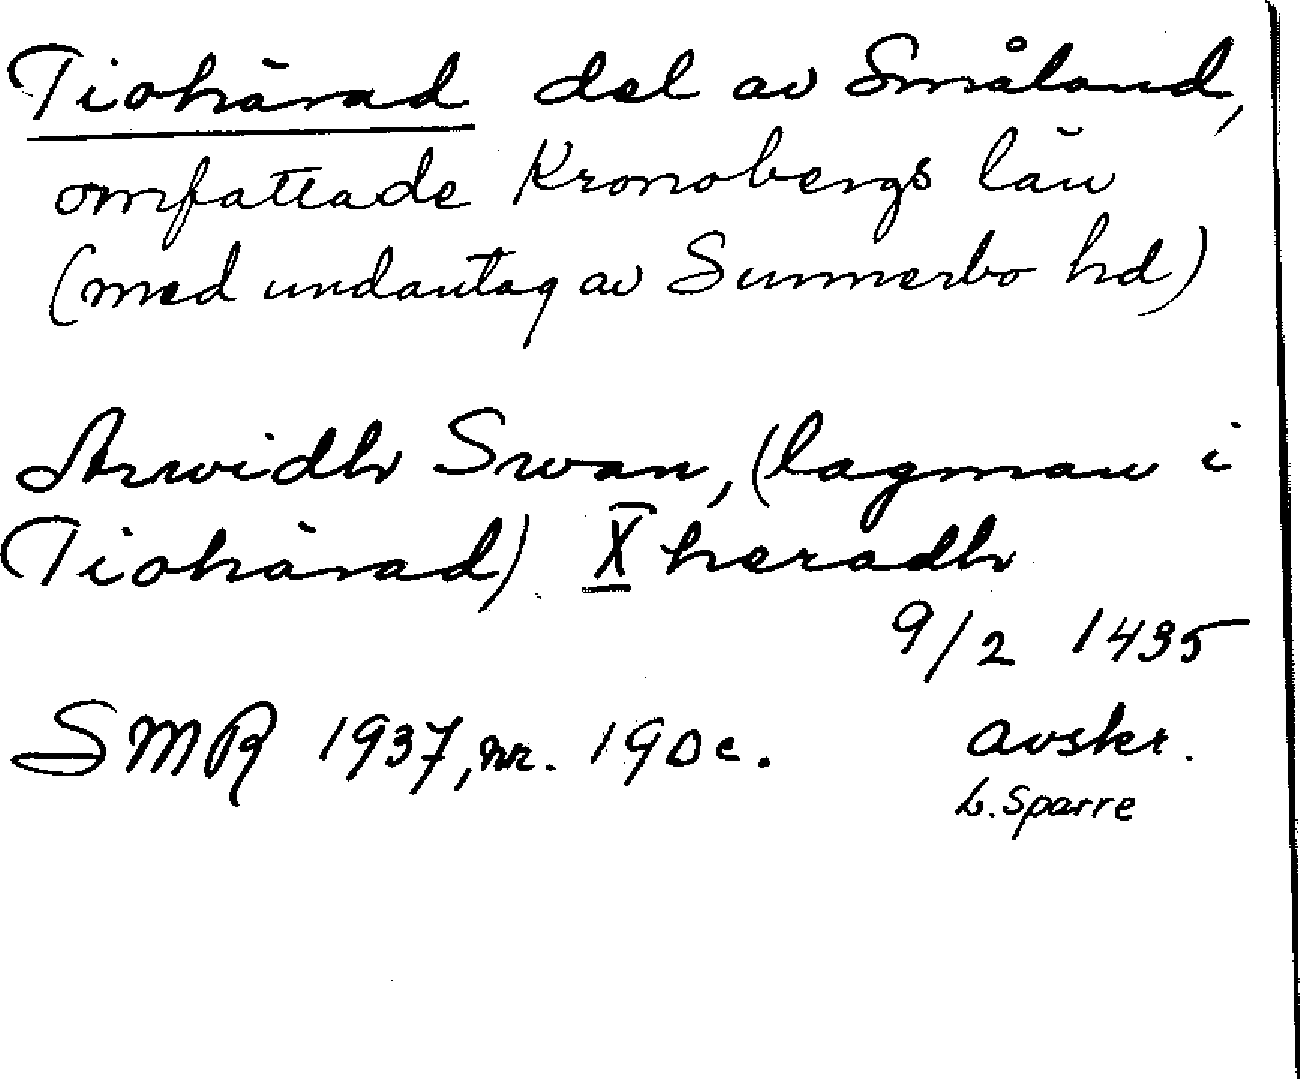 Tiohärad del av Småland,
omfattade Kronobergs län
(med undantag av Sunnerbo hd)
Arwidh Swan, (lagman i
Tiohärad) X heradh
9/2 1435
SMR 1937, nr. 190c. avskr.
L. Sparre